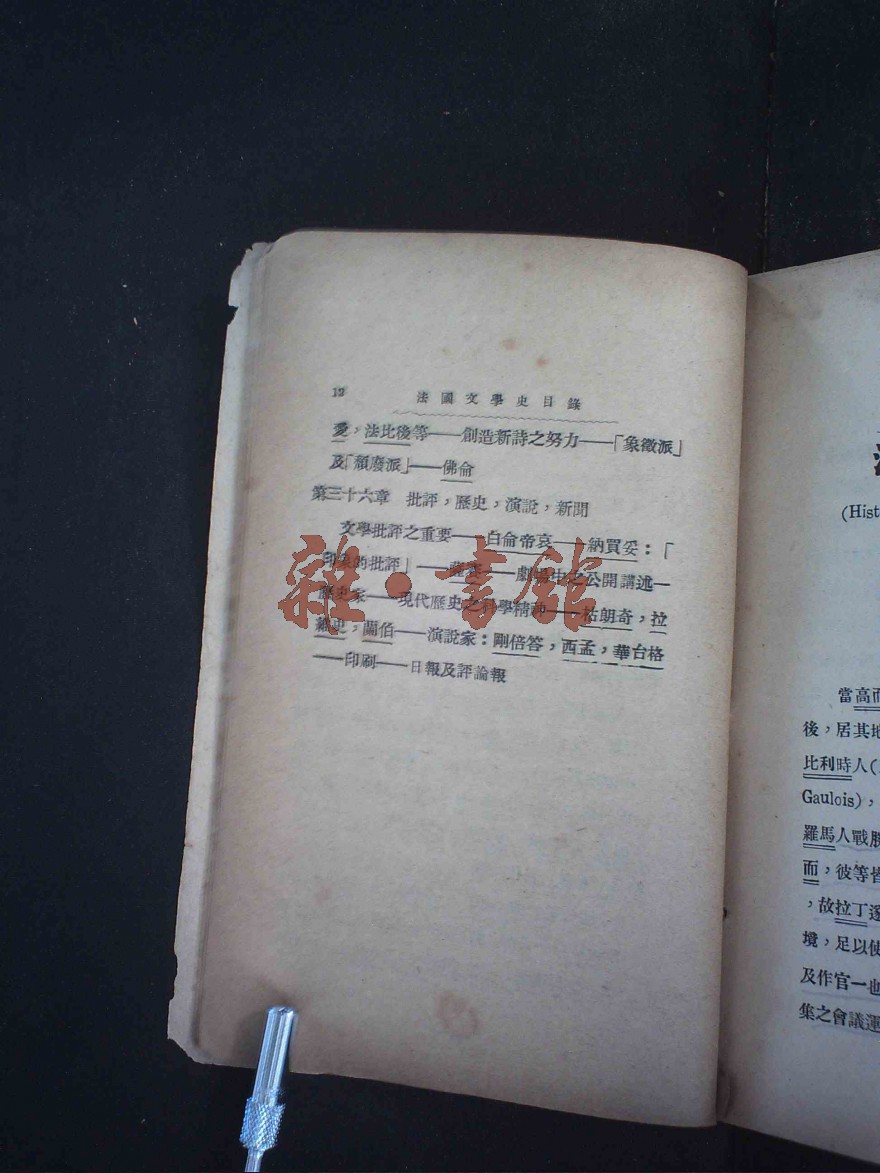 12
法國文學史目錄
愛,法比後等——創造新詩之努力——「象徵派」
及「頹廢派」——佛侖
第三十六章 批評,歷史,演說,新聞
文學批評之重要——白侖帝哀——納買妥:「
印象的批評」——薩塞——劇場中之公開講述—
歷史家——現代歷史之科學精神——枯朗奇,拉
維史,蘭伯——演說家:剛倍答,西孟,華台格
——印刷——日報及評論報
雜·書館
(Hist
當高而
後,居其地
比利時人(
Gaulois),
羅馬人戰勝
而,彼等皆
,故拉丁逐
境,足以使
及作官一也
集之會議運